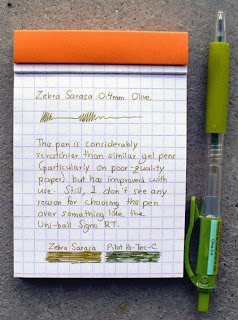 Zebra Sarasa 0.4mm Olive
This pen is considerably
scratchier than similar gel pens
(particularly on poor-quality
paper) but has improved with
use. Still, I don't see any
reason for choosing this pen
over something like the
Uni-ball Signo RT.
Zebra Sarasa Pilot Hi-Tec-C